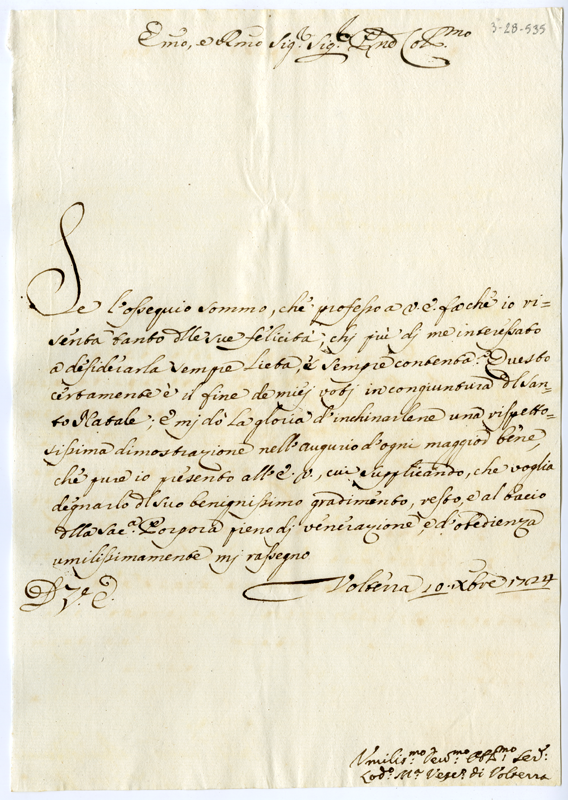 3-28-535
Emo, e Rmo Sig.r Sig.r Pnd Col.mo
Se l'ossequio sommo, che professo a V. E. fa che io ri=
senta tanto dlle sue felicità; chi più di me interessato
a desiderarla sempre lieta, e sempre contenta? Questo
certamente è il fine de miei voti in congiuntura dl San=
to Natale; E mi dò la gloria d'inchinarlene una rispetto=
sissima dimostrazione nell'augurio d'ogni maggior bene,
che pure io presento all'E. V., cui supplicando, che voglia
degnarlo dl suo benignissimo gradimento, resto, e al bacio
dlla Sac.a Porpora pieno di venerazione, e d'obedienza
umilissimamente mi rassegno
D V.a E.
Volterra 10. Xbre 1724
Umilis.mo Dev.mo Obl.mo Ser.
Lod.o M.a Vesc.o di Volterra